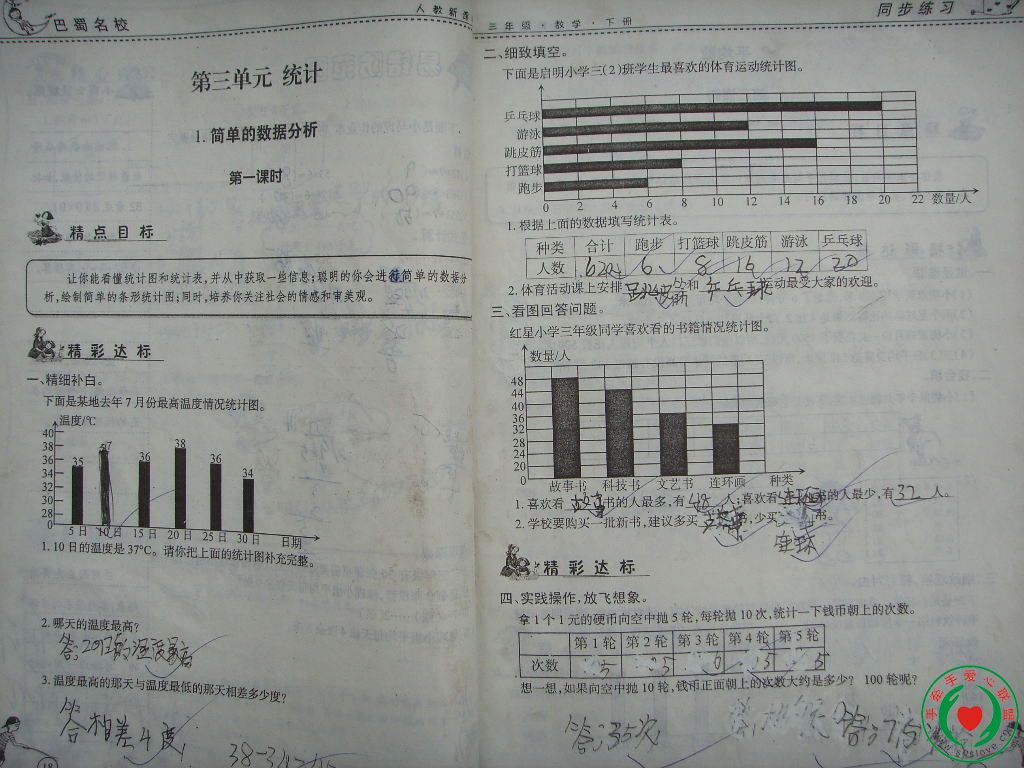 巴蜀名校
人教新
第三单元 统计
1.简单的数据分析
第一课时
精点目标
让你能看懂统计图和统计表,并从中获取一些信息;聪明的你会进行简单的数据分
析,绘制简单的条形统计图;同时,培养你关注社会的情感和审美观。
精彩达标
一、精细补白。
下面是某地去年7月份最高温度情况统计图。
温度/℃
40
38
36
34
32
30
28
0
35 37 36 38 36 34
5日 10日 15日 20日 25日 30日 日期
1.10日的温度是37℃。请你把上面的统计图补充完整。
2.哪天的温度最高?
答:20日的温度最高
3.温度最高的那天与温度最低的那天相差多少度?
答相差4度
18
三年级·数学·下册
同步练习
二、细致填空。
下面是启明小学三(2)班学生最喜欢的体育运动统计图。
乒乓球
游泳
跳皮筋
打篮球
跑步
0 2 4 6 8 10 12 14 16 18 20 22 数量/人
1.根据上面的数据填写统计表。
种类 合计 跑步 打篮球 跳皮筋 游泳 乒乓球
人数 6 8 16 12 20
2.体育活动课上安排跳皮筋和乒乓球运动最受大家的欢迎。
三、看图回答问题。
红星小学三年级同学喜欢看的书籍情况统计图。
数量/人
48
44
40
36
32
28
24
20
0
故事书 科技书 文艺书 连环画 种类
1.喜欢看故事书的人最多,有48人;喜欢看连环画书的人最少,有32人。
2.学校要购买一批新书,建议多买故事书,少买书。
精彩达标
四、实践操作,放飞想象。
拿1个1元的硬币向空中抛5轮,每轮抛10次,统计一下钱币朝上的次数。
第1轮 第2轮 第3轮 第4轮 第5轮
次数 5 5 5 5
想一想,如果向空中抛10轮,钱币正面朝上的次数大约是多少? 100轮呢?
答:35次
手牵手爱心联盟